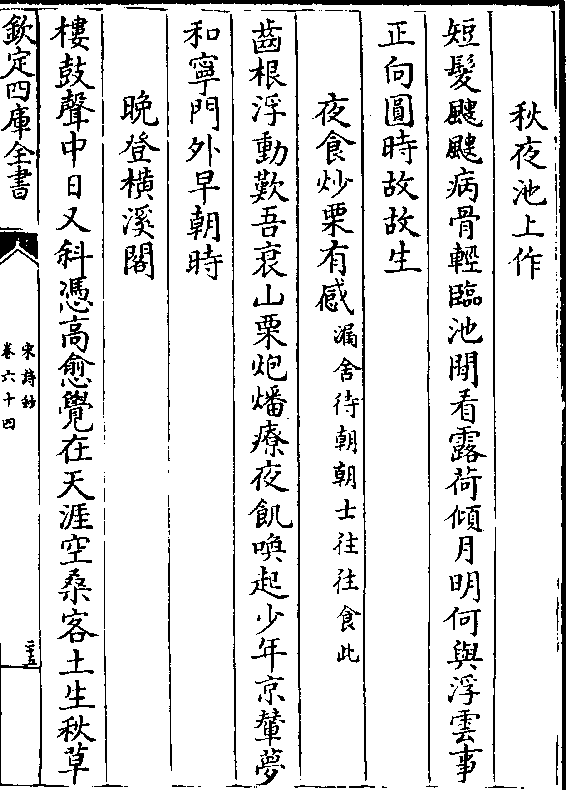 秋夜池上作
短髮颼颼病骨輕臨池閒看露荷傾月明何與浮雲事
正向圓時故故生
夜食炒栗有感漏舍待朝朝士往往食此
齒根浮動歎吾衰山栗炮燔療夜飢喚起少年京輦夢
和寧門外早朝時
晚登横溪閣
樓鼓聲中日又斜憑高愈覺在天涯空桑客土生秋草
欽定四庫全書
宋詩鈔
卷六十四
三五